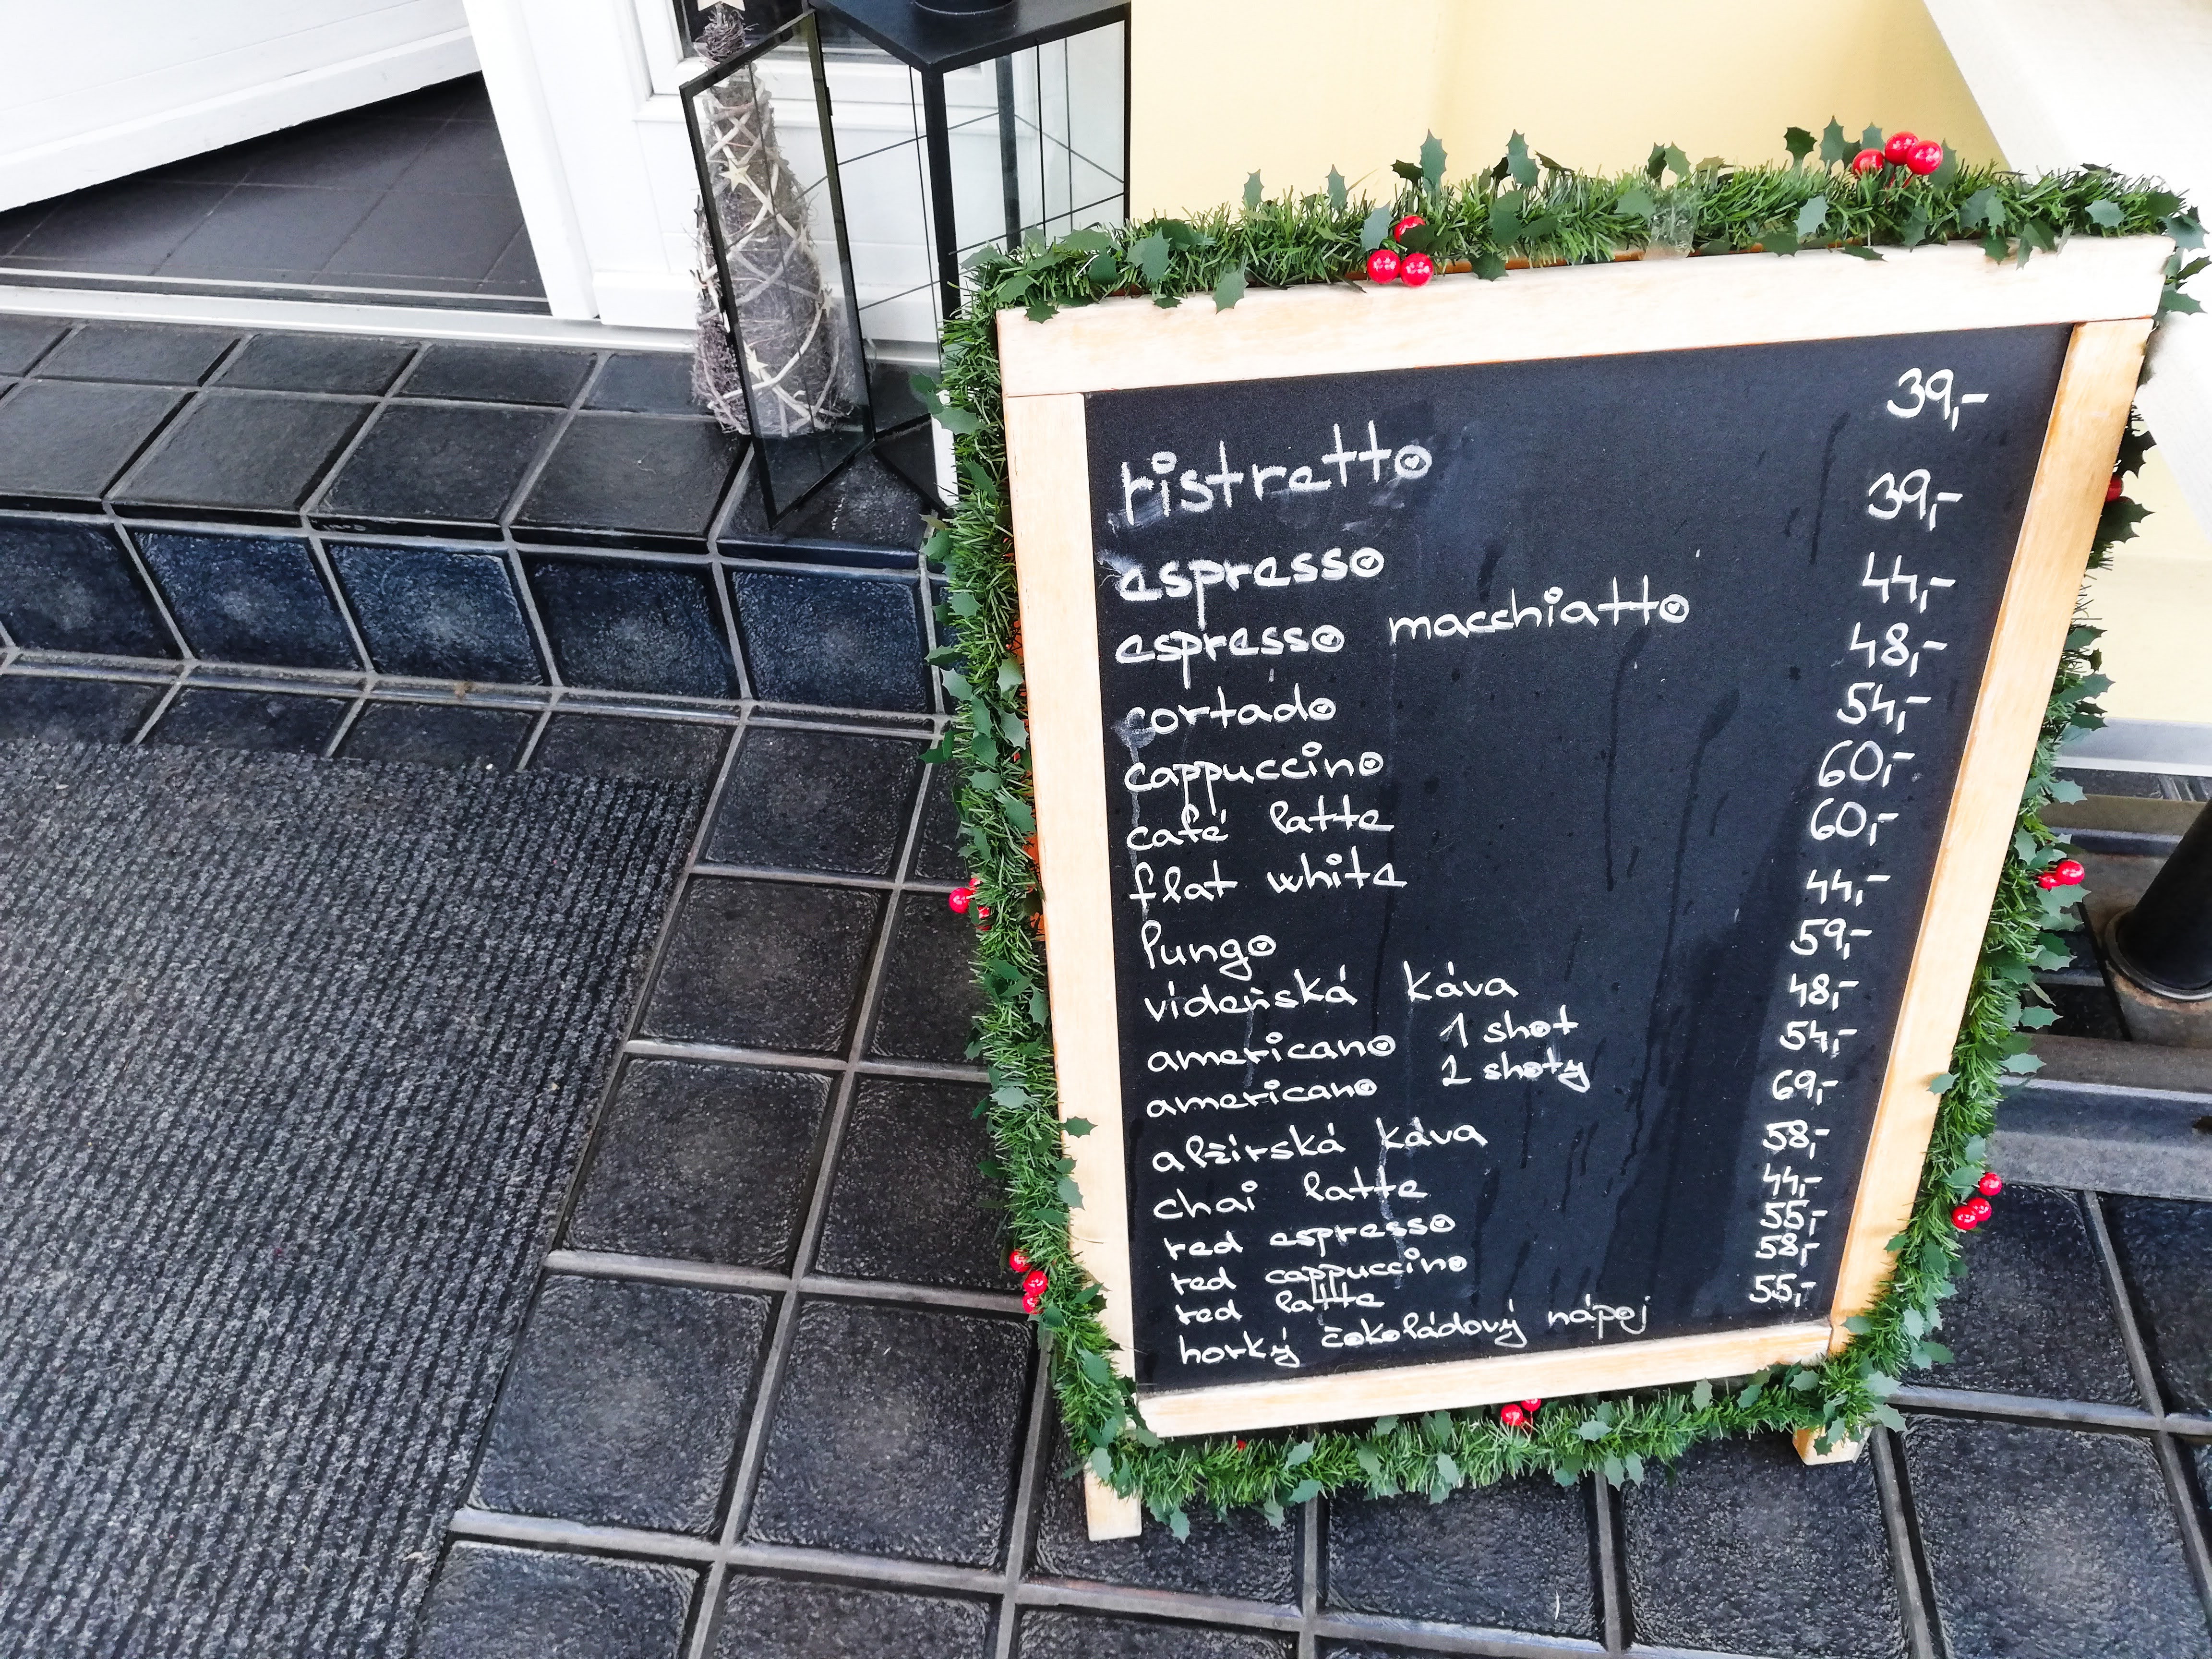 ristretto 39,-
espresso 39,-
espresso macchiatto 44,-
cortado 48,-
cappuccino 54,-
café latte 60,-
flat white 60,-
lungo 44,-
vídeňská káva 59,-
americano 1 shot 48,-
americano 2 shoty 54,-
alžírská káva 69,-
chai latte 58,-
red espresso 44,-
red cappuccino 55,-
red latte 58,-
horký čokoládový nápoj 55,-